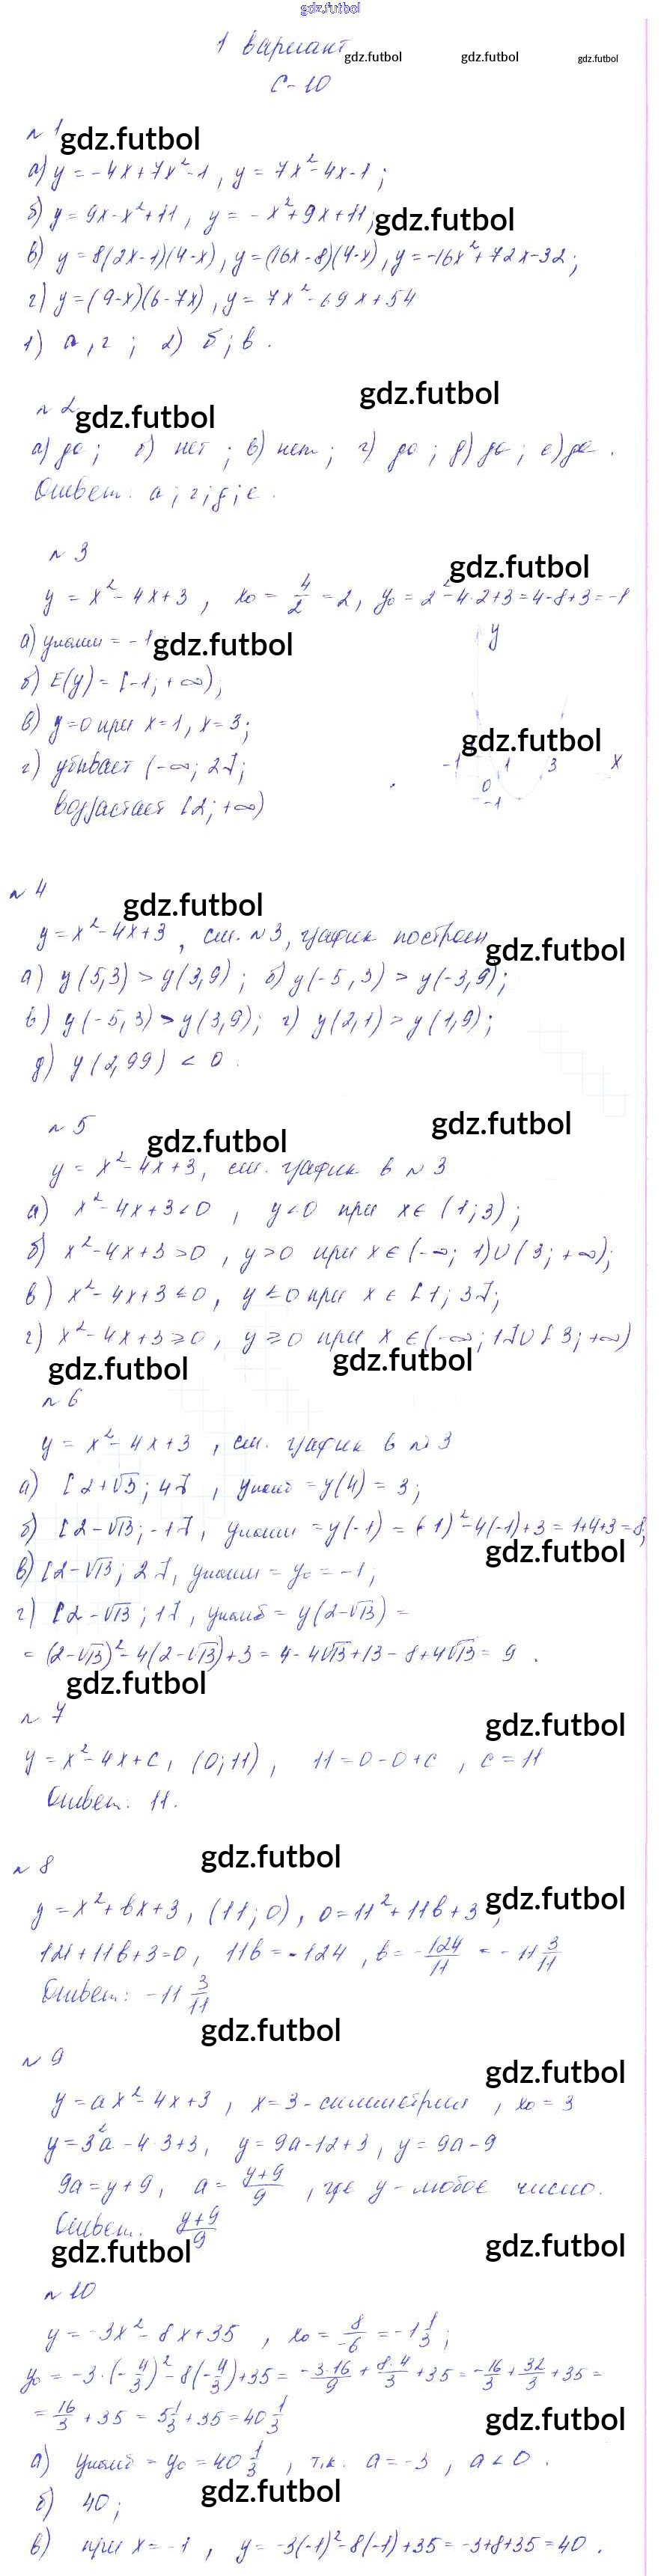 gdz.futbol
1 вариант
gdz.futbol gdz.futbol gdz.futbol
С-10
№1 gdz.futbol
а) y = -4x+7x²-1, y = 7x²-4x-1;
б) y = 9x-x²+11, y = -x²+9x+11; gdz.futbol
в) y = 8(2x-1)(4-x), y=(16x-8)(4-x), y=-16x²+72x-32;
г) y=(9-x)(6-7x), y = 7x²-69x+54
1) а, г; 2) б; в.
gdz.futbol
№2 gdz.futbol
а) да; б) нет; в) нет; г) да; д) да; е) да.
Ответ: а; г; д; е.
№3
gdz.futbol
y = x²-4x+3, x₀ = 4/2 = 2, y₀ = 2²-4·2+3=4-8+3=-1
y
а) yнаим = -1 gdz.futbol
б) E(y) = [-1; +∞);
в) y=0 при x=1, x=3; gdz.futbol
-1 1 3 x
г) убывает (-∞; 2];
0
-1
возрастает [2; +∞)
№4
gdz.futbol
y = x²-4x+3, см. №3, график построен
gdz.futbol
а) y(5,3) > y(3,9); б) y(-5,3) > y(-3,9);
в) y(-5,3) > y(3,9); г) y(2,1) > y(1,9);
д) y(2,99) < 0.
№5 gdz.futbol
gdz.futbol
y = x²-4x+3, см. график в №3
а) x²-4x+3<0, y<0 при x∈(1;3);
б) x²-4x+3>0, y>0 при x∈(-∞; 1)∪(3; +∞);
в) x²-4x+3≤0, y≤0 при x∈[1; 3];
г) x²-4x+3≥0, y≥0 при x∈(-∞; 1]∪[3; +∞)
gdz.futbol gdz.futbol
№6
y = x²-4x+3, см. график в №3
а) [2+√3; 4], yнаиб = y(4) = 3;
б) [2-√13; -1], yнаим = y(-1) = (-1)²-4(-1)+3 = 1+4+3=8;
gdz.futbol
в) [2-√13; 2], yнаим = y₀ = -1;
г) [2-√13; 1], yнаиб = y(2-√13) =
= (2-√13)²-4(2-√13)+3 = 4-4√13+13-8+4√13 = 9.
gdz.futbol
№7 gdz.futbol
y = x²-4x+c, (0; 11), 11=0-0+c, c=11
Ответ: 11.
№8 gdz.futbol
y = x²+bx+3, (11; 0), 0=11²+11b+3, gdz.futbol
121+11b+3=0, 11b=-124, b=-124/11 = -11 3/11
Ответ: -11 3/11
gdz.futbol
№9
gdz.futbol
y = ax²-4x+3, x=3 - симметрия, x₀=3
y=3²a-4·3+3, y=9a-12+3, y=9a-9
9a=y+9, a = (y+9)/9, где y - любое число.
Ответ: (y+9)/9
gdz.futbol gdz.futbol
№10
y = -3x²-8x+35, x₀ = 8/-6 = -1 1/3;
y₀ = -3·(-4/3)²-8(-4/3)+35 = -3·16/9 + 8·4/3 + 35 = -16/3 + 32/3 + 35 =
= 16/3 + 35 = 5 1/3 + 35 = 40 1/3
gdz.futbol
а) yнаиб = y₀ = 40 1/3, т.к. a=-3, a<0.
б) 40; gdz.futbol
в) при x=-1, y = -3(-1)²-8(-1)+35 = -3+8+35=40.